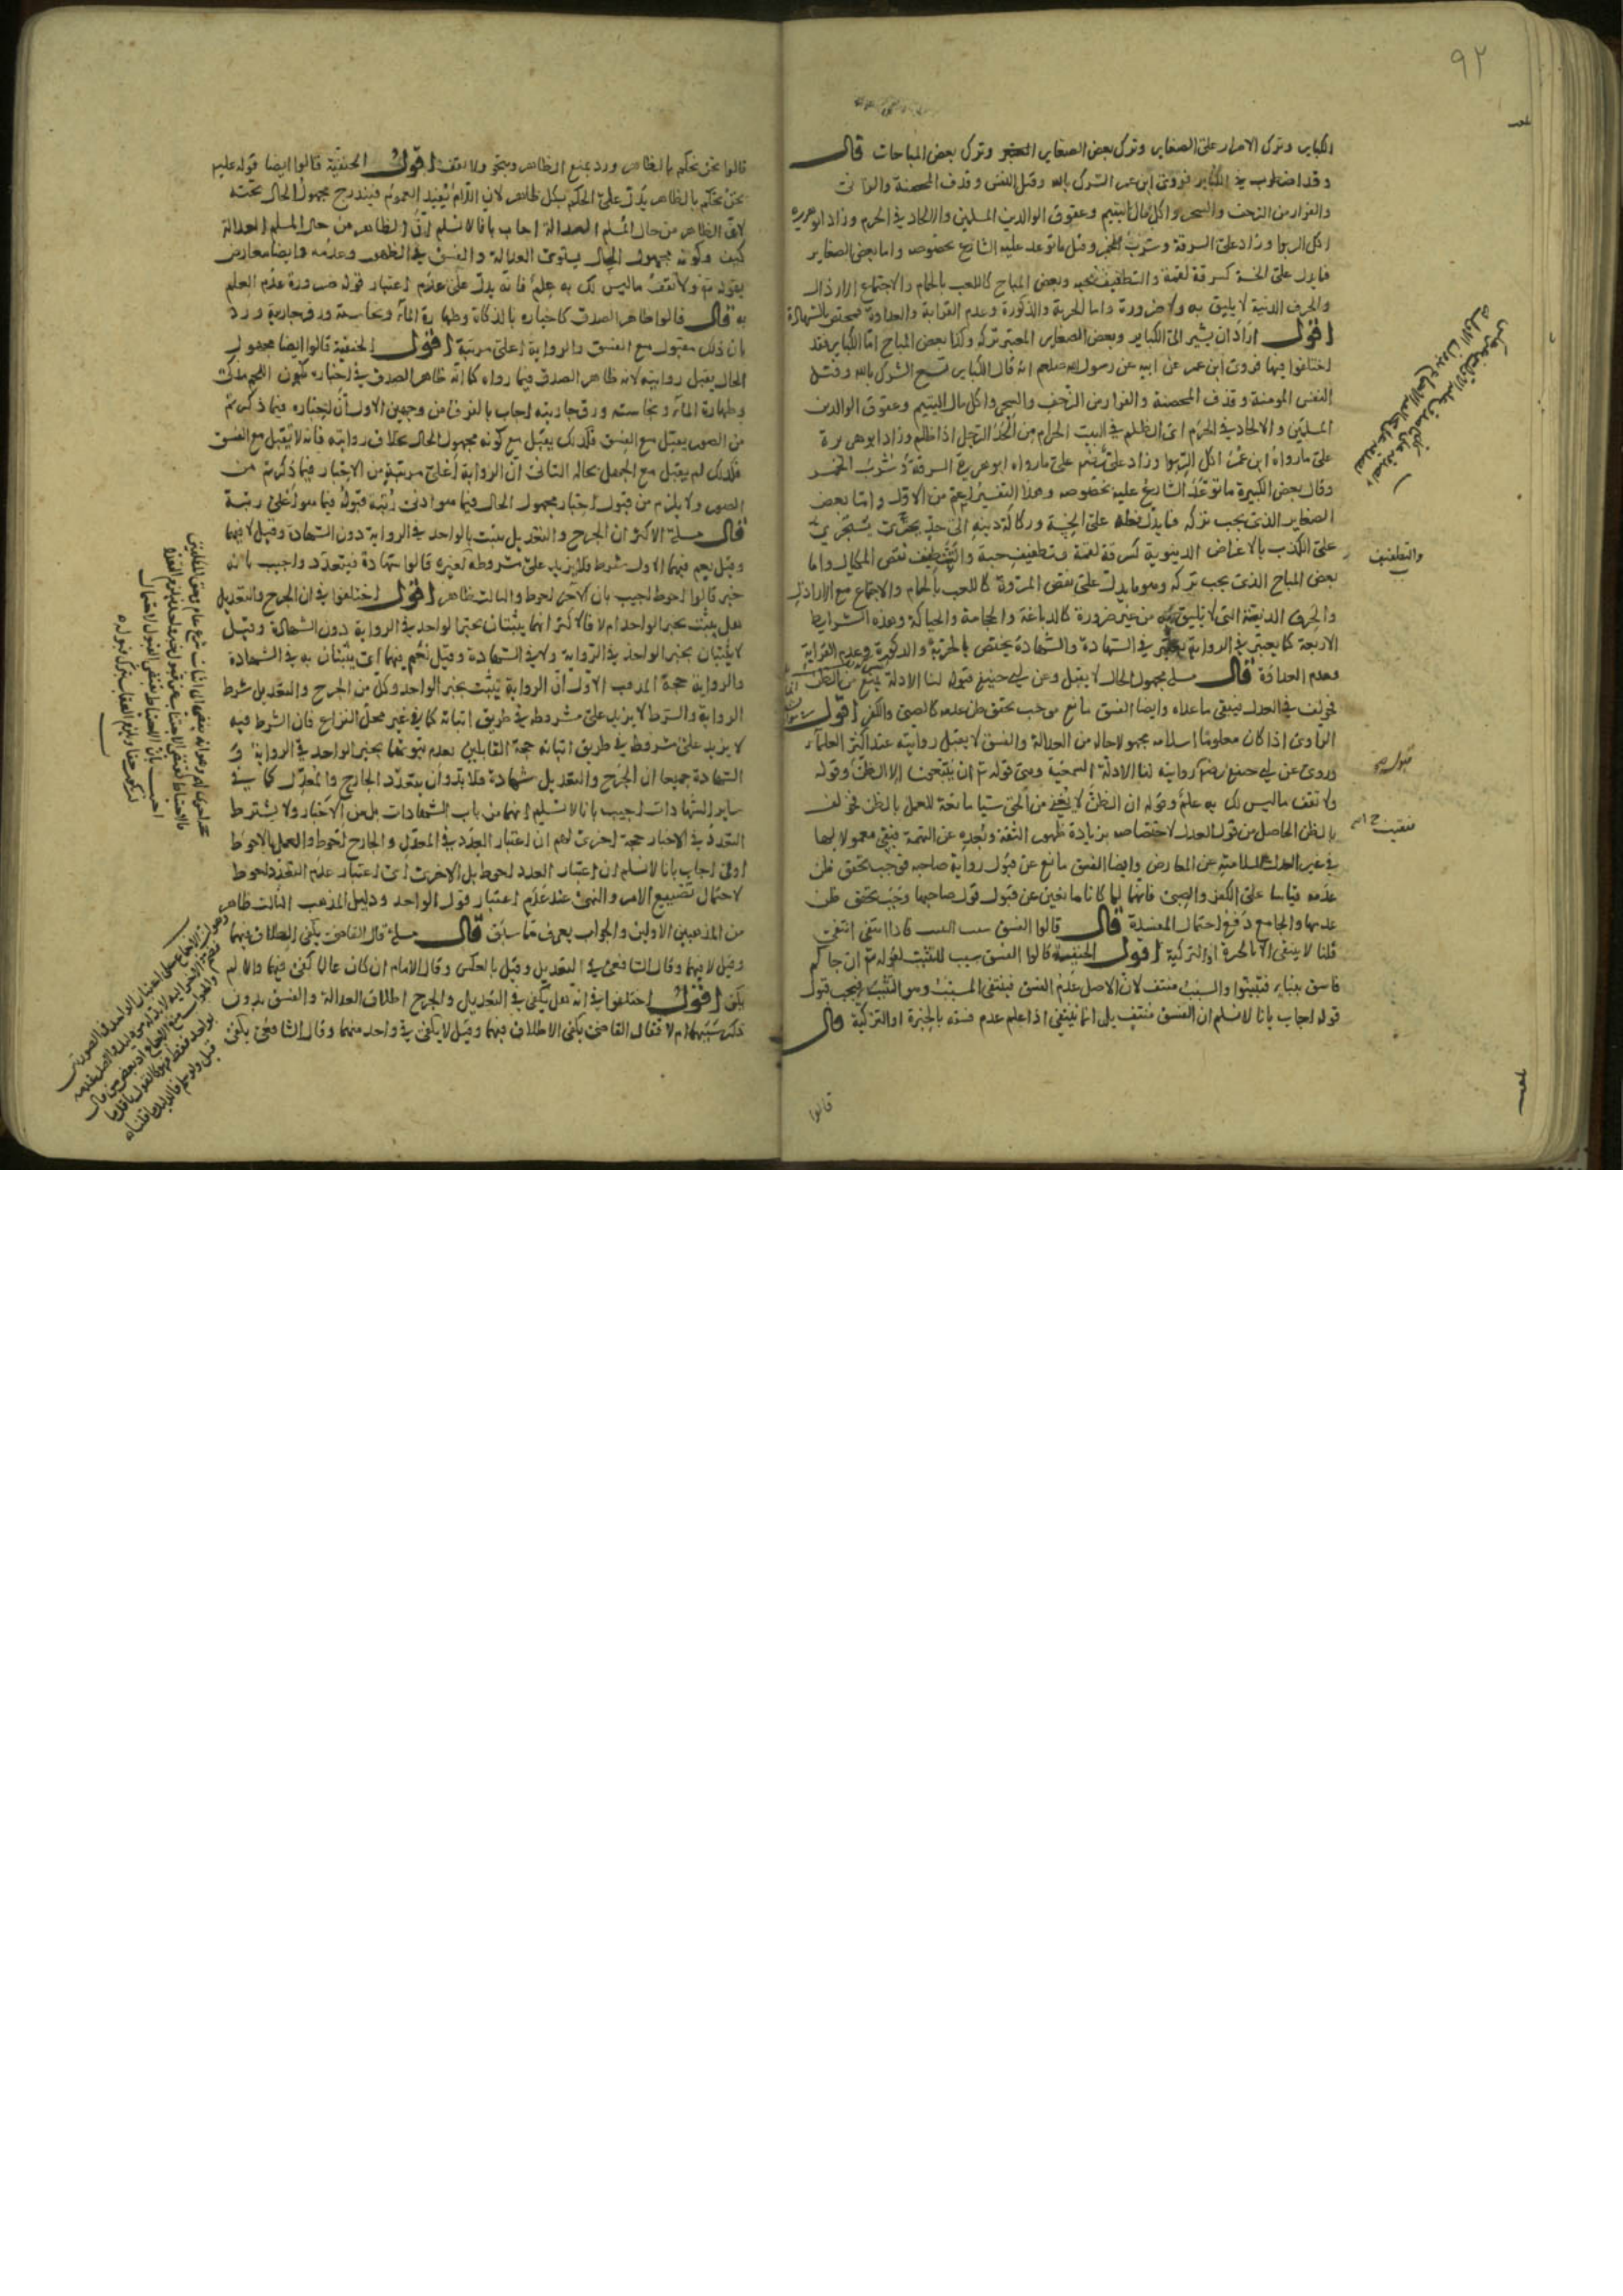 ٩٢
الكباير وترك الاصرار على الصغاير وترك بعض الصغاير وترك بعض المباحات قال
وقد اضطرب في الكباير فروى ابن عمر الشرك بالله وقتل النفس وقذف المحصنة والزنا
والفرار من الزحف والسحر واكل مال اليتيم وعقوق الوالدين المسلمين والالحاد في الحرم وزاد ابو هريرة
اكل الربوا وزاد على السرقة وشرب الخمر وقيل ما توعد عليه الشارع بخصوصه واما بعض الصغاير
فما يدل على الخسة كسرقة لقمة والتطفيف بحبة وبعض المباح كاللعب بالحمام والاجتماع الارذال
والحرف الدنية لا يليق به ولا ضرورة واما الحرية والذكورة وعدم القرابة والعداوة فمختص بالشهادة
اقول اراد ان يشير الى الكباير وبعض الصغاير المعتبر تركه وكذا بعض المباح اما الكباير فقد
اختلفوا فيها فروى ابن عمر عن ابيه عن رسول الله صلعم انه قال الكباير تسع الشرك بالله وقتل
النفس المومنة وقذف المحصنة والفرار من الزحف والسحر واكل مال اليتيم وعقوق الوالدين
المسلمين والالحاد في الحرم اى الظلم في البيت الحرام من الحد الرجل اذا ظلم وزاد ابو هريرة
على ما رواه ابن عمر اكل الربوا وزاد على رضهم على ما رواه ابو هريرة السرقة وشرب الخمر
وقال بعض الكبيرة ما توعد الشارع عليه بخصوصه وهذا التفسير اعم من الاول واما بعض
الصغاير الذى يجب تركه فما يدل فعله على الخسة وركاكة دينه الى حد يجترى
على الكذب بالاغراض الدنيوية كسرقة لقمة وتطفيف حبة والتطفيف نقص المكيال واما
بعض المباح الذى يجب تركه وهو ما يدل على نقص المروة كاللعب بالحمام والاجتماع مع الاراذل
والحرف الدنية التى لا يليق به من غير ضرورة كالدباغة والحجامة والحياكة وهذه الشرايط
الاربعة كما يعتبر في الرواية يعتبر في الشهادة والشهادة يختص بالحرية والذكورة وعدم القرابة
وعدم العداوة قال مسلة مجهول الحال لا يقبل وعن ابي حنيفة قبوله لنا الادلة تمنع من الظن
فخولف في العدل فيبقى ما عداه وايضا الفسق مانع موجب تحقق ظن عدمه كالصبى والكفر اقول
الراوى اذا كان معلوما اسلامه مجهولا حاله من العدالة والفسق لا يقبل روايته عند اكثر العلماء
وروى عن ابي حنيفة رضه روايته لنا الادلة السمعية وهى قوله تع ان يتبعون الا الظن وقوله
ولا تقف ما ليس لك به علم وقوله ان الظن لا يغنى من الحق شيا مانعة للعمل بالظن فخولف
بالظن الحاصل من قول العدل لاختصاصه بزيادة ظهور الثقة وبعده عن التهمة فبقى معمولا بها
في غير العدل السلامته عن المعارض وايضا الفسق مانع عن قبول رواية صاحبه فوجب تحقق ظن
عدمه قياسا على الكفر والصبى فانهما لما كانا مانعين عن قبول قول صاحبهما وجب تحقق ظن
عدمهما والجامع دفع احتمال المفسدة قال قالوا الفسق سبب التثبت فاذا انتفى انتفى
قلنا لا ينتفى الا بالخبرة او التزكية اقول الحنفية قالوا الفسق سبب للتثبت لقوله تع ان جاكم
فاسق بنباء فتبينوا والسبب منتف لان الاصل عدم الفسق فينتفى المسبب وهو التثبت فيجب قبول
قوله اجاب بانا لا نسلم ان الفسق منتف بلى انما ينتفى اذا علم عدم فسقه بالخبرة او التزكية قال
والتطفيف
قالوا
قالوا نحن نحكم بالظاهر ورد بمنع الظاهر وبنحو ولا تقف اقول الحنفية قالوا ايضا قوله عليه
نحن نحكم بالظاهر يدل على الحكم بكل ظاهر لان اللام يفيد العموم فيندرج مجهول الحال تحته
لان الظاهر من حال المسلم العدالة اجاب بانا لا نسلم ان الظاهر من حال المسلم العدالة
كيف وكونه مجهول الحال يستوى العدالة والفسق في الظهور وعدمه وايضا معارض
بقوله تع ولا تقف ما ليس لك به علم فانه يدل على عدم اعتبار قوله ضرورة عدم العلم
به قال قالوا ظاهر الصدق كاخباره بالذكاة وطهارة الماء ونجاسته ورق جاريته ورد
بان ذلك مقبول مع الفسق والرواية اعلى مرتبة اقول الحنفية قالوا ايضا مجهول
الحال يقبل روايته لانه ظاهر الصدق فيما رواه كما انه ظاهر الصدق في اخباره بكون اللحم مذكى
وطهارة الماء ونجاسته ورق جاريته اجاب بالفرق من وجهين الاول ان اخباره فيما ذكرتم
من الصور يقبل مع الفسق فكذلك يقبل مع كونه مجهول الحال بخلاف روايته فانه لا تقبل مع الفسق
فكذلك لم يقبل مع الجهل بحاله الثانى ان الرواية اعلى مرتبة من الاخبار فيما ذكرتم من
الصور ولا يلزم من قبول اخبار مجهول الحال فيما هو ادنى رتبة قبوله فيما هو اعلى رتبة
قال مسلة الاكثر ان الجرح والتعديل يثبت بالواحد في الرواية دون الشهادة وقيل لا فيهما
وقيل نعم فيهما الاول شرط فلا يزيد على مشروطه كغيره قالوا شهادة فيتعدد واجيب بانه
خبر قالوا احوط اجيب بان الاخر احوط والثالث ظاهر اقول اختلفوا في ان الجرح والتعديل
هل يثبت بخبر الواحد ام لا فالاكثر انهما يثبتان بخبر الواحد في الرواية دون الشهادة وقيل
لا يثبتان بخبر الواحد في الرواية ولا في الشهادة وقيل نعم فيهما اى يثبتان به في الشهادة
والرواية حجة المذهب الاول ان الرواية تثبت بخبر الواحد وكل من الجرح والتعديل شرط
الرواية والشرط لا يزيد على مشروطه في طريق اثباته كما في غير محل النزاع فان الشرط فيه
لا يزيد على مشروطه في طريق اثباته حجة القايلين بعدم ثبوتهما بخبر الواحد في الرواية و
الشهادة جميعا ان الجرح والتعديل شهادة فلا بد وان يتعدد الجارح والمعدل كما في
ساير الشهادات اجيب بانا لا نسلم انهما من باب الشهادات بل من الاخبار ولا يشترط
التعدد في الاخبار حجة اخرى لهم ان اعتبار العدد في المعدل والجارح احوط والعمل بالاحوط
اولى اجاب بانا لا نسلم ان اعتبار العدد احوط بل الاخرى اى اعتبار عدم التعدد احوط
لاحتمال تضييع الامر والنهى عند عدم اعتبار قول الواحد ودليل المذهب الثالث ظاهر
من المذهبين الاولين والجواب يعرف مما سبق قال مسلة قال القاضى يكفى الاطلاق فيهما
وقيل لا فيهما وقال الشافعى في التعديل وقيل بالعكس وقال الامام ان كان عالما كفى فيهما والا لم
يكف اقول اختلفوا في انه هل يكفى في التعديل والجرح اطلاق العدالة والفسق بدون
ذكر سببهما ام لا فقال القاضى يكفى الاطلاق فيهما وقيل لا يكفى في واحد منهما وقال الشافعى يكفى